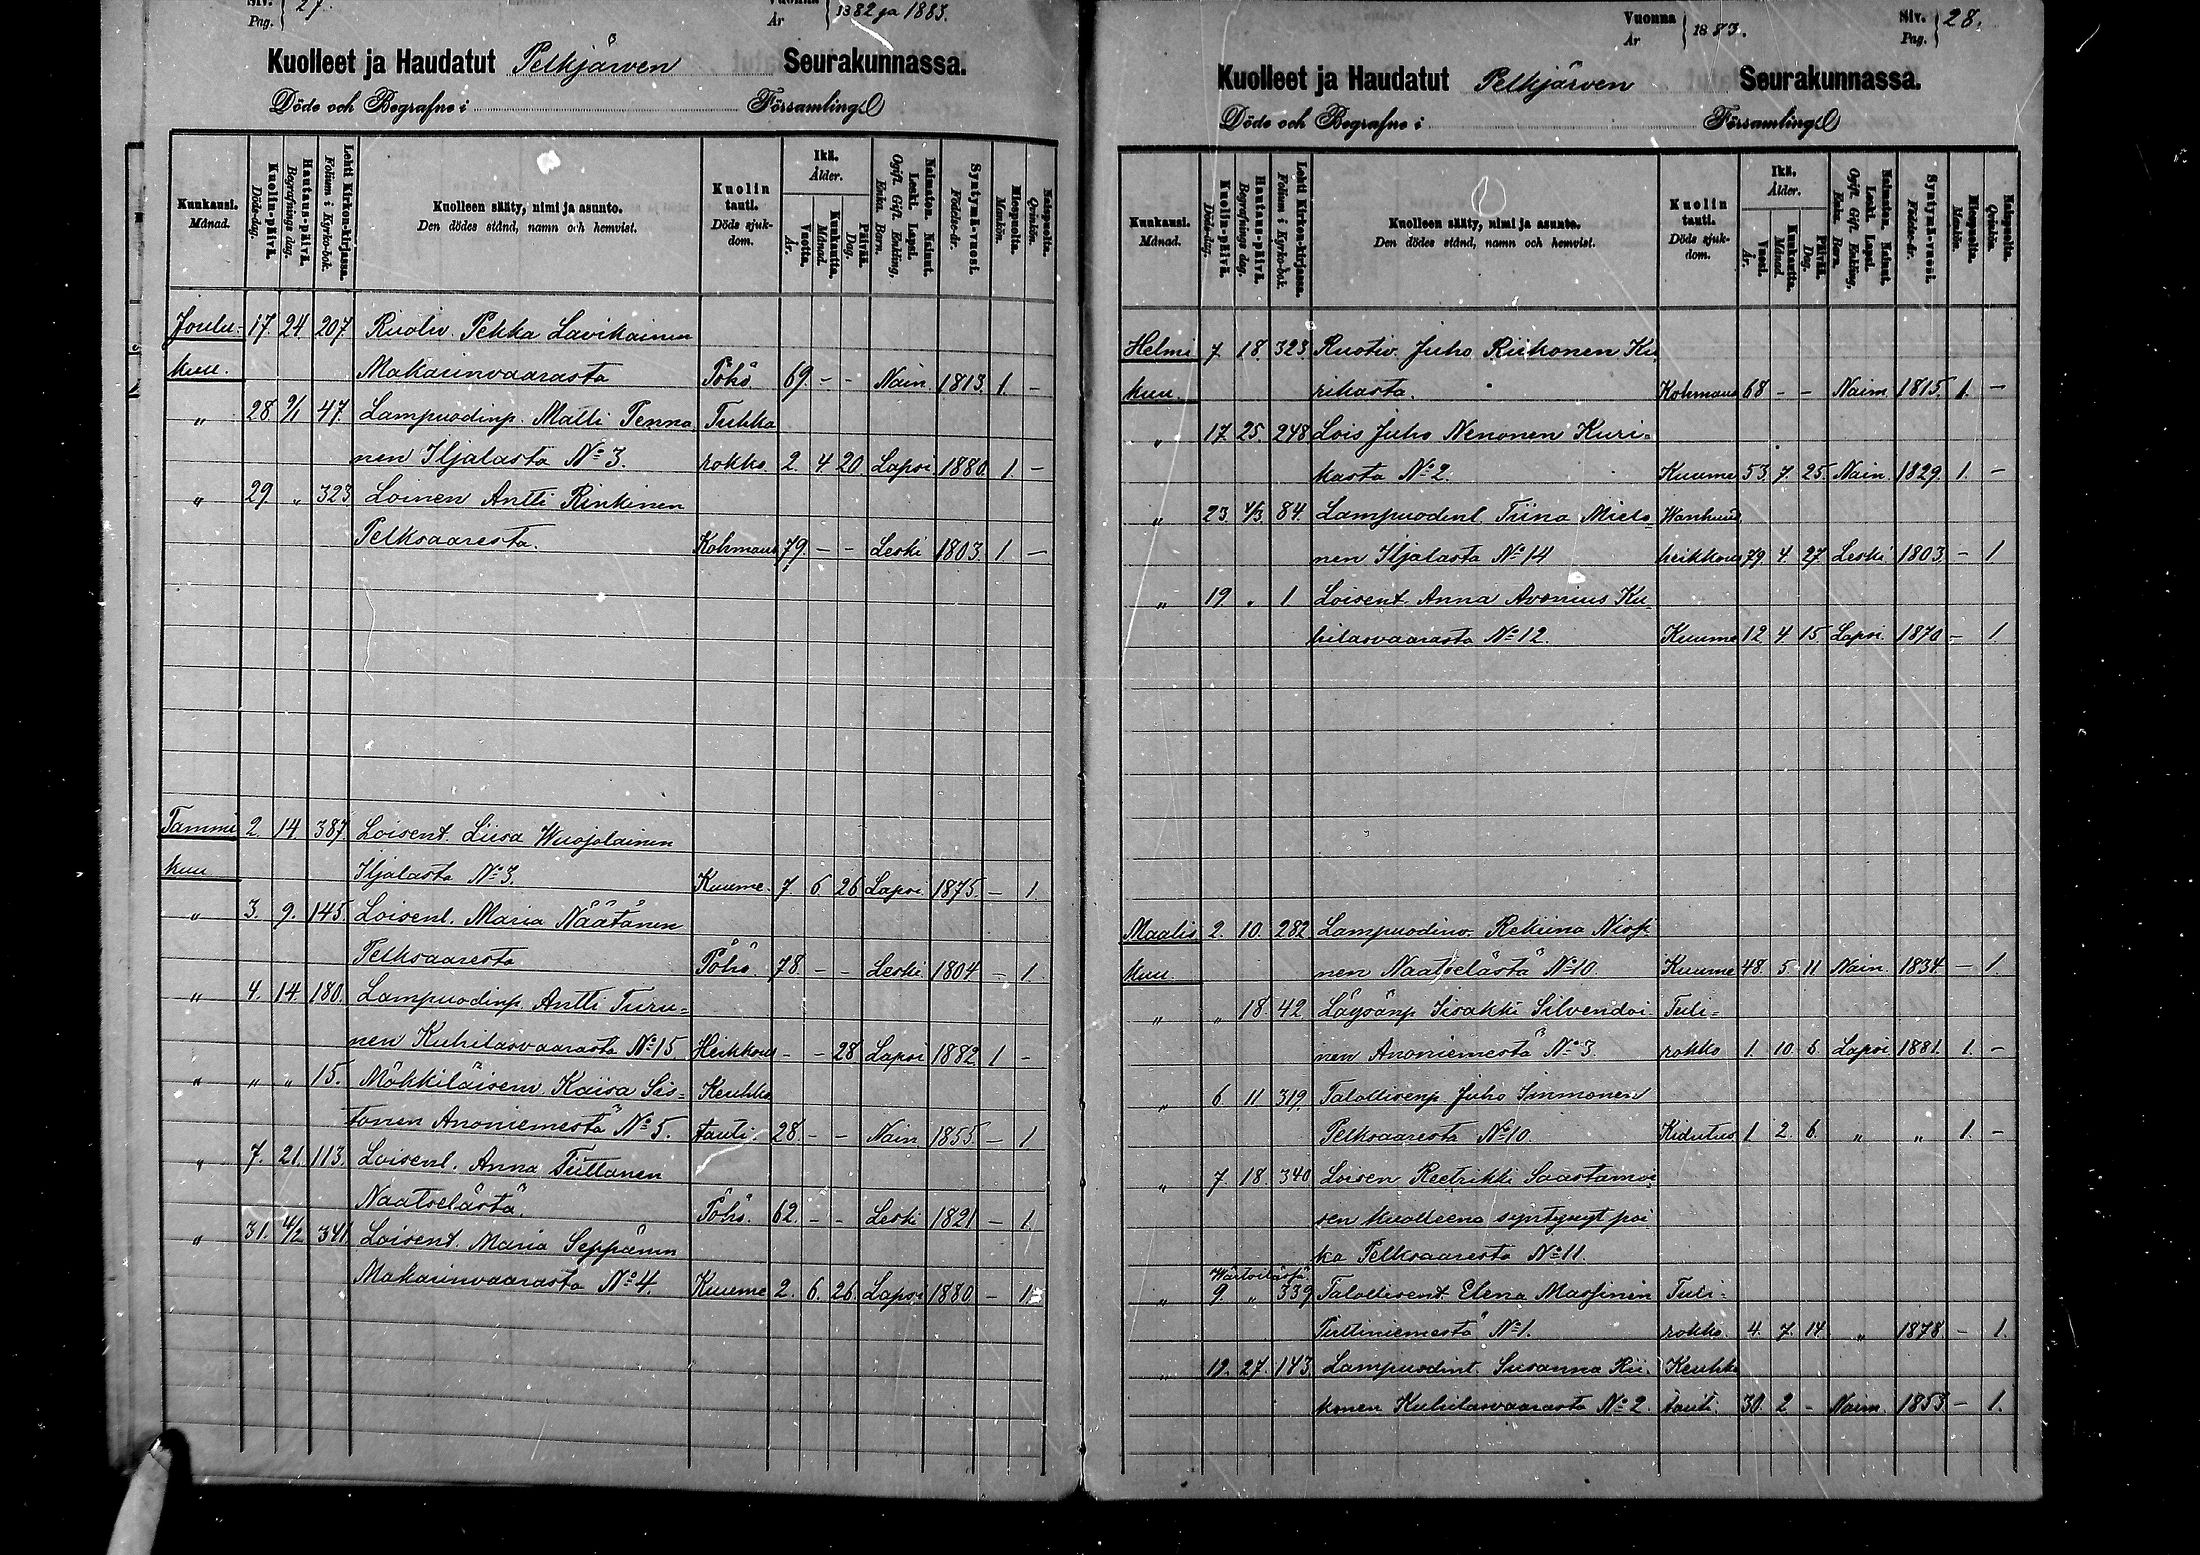 Siv. Pag. 27.
Vuonna År 1882 ja 1883.
Kuolleet ja Haudatut Pelkjärven Seurakunnassa.
Döde och Begrafne i Församling
Kuukausi. Månad.
Kuolin-päivä. Döds-dag.
Hautaus-päivä. Begrafnings dag.
Lehti Kirkon-kirjassa. Folium i Kyrko-bok.
Kuolleen sääty, nimi ja asunto. Den dödes stånd, namn och hemvist.
Kuolin tauti. Döds sjukdom.
Ikä. Ålder.
Vuotta. År.
Kuukautta. Månad.
Päivää. Dag.
Naimaton. Nainut. Leski. Lapsi. Ogift. Gift. Enkling, Enka. Barn.
Syntymä-vuosi. Födelse-år.
Miespuolta. Mankön.
Naispuolta. Qvinkön.
Joulu= 17. 24. 207 Ruotiv. Pekka Lavikainen
kuu. Makarinvaarasta Pöhö 69 - - Nain. 1813. 1. -
" 28 2/1 47. Lampuodinp. Matti Tenna Tuhka
nen Iljalasta No 3. rokko. 2. 4 20 Lapsi 1880. 1. -
" 29 " 323 Loinen Antti Rinkinen
Pelksaaresta. Kohmaus 79. - - Leski 1803. 1. -
Tammi 2. 14. 387 Loisent. Liisa Wuojolainen
kuu Iljalasta No 3. Kuume. 7 6 26 Lapsi 1875. - 1.
" 3. 9. 145. Loisenl. Maria Näätänen
Pelksaaresta Pöhö. 78. - - Leski 1804 - 1.
" 4. 14. 180. Lampuodinp. Antti Turu=
nen Kuhilasvaarasta No 15 Heikkous - - 28 Lapsi 1882. 1 -
" " " 15. Möhkiläisenv. Kaisa Sis=
tonen Anoniemestä No 5. Keuhko tauti. 28. - - Nain. 1855 - 1.
" 7. 21. 113. Loisenl. Anna Tiittanen
Naatselästä. Pöhö. 62. - - Leski 1821 - 1.
" 31. 4/2 341. Loisent. Maria Seppänen
Makarinvaarasta No 4. Kuume 2. 6. 26. Lapsi 1880 - 1.
Vuonna År 1883.
Siv. Pag. 28.
Kuolleet ja Haudatut Pelkjärven Seurakunnassa.
Döde och Begrafne i Församling
Kuukausi. Månad.
Kuolin-päivä. Döds-dag.
Hautaus-päivä. Begrafnings dag.
Lehti Kirkon-kirjassa. Folium i Kyrko-bok.
Kuolleen sääty, nimi ja asunto. Den dödes stånd, namn och hemvist.
Kuolin tauti. Döds sjukdom.
Ikä. Ålder.
Vuosi. År.
Kuukautta. Månad.
Päivää. Dag.
Naimaton. Nainut. Leski. Lapsi. Ogift. Gift. Enkling, Enka. Barn.
Syntymä-vuosi. Födelse-år.
Miespuolta. Mankön.
Naispuolta. Qvinkön.
Helmi 7 18. 323 Ruotiv. Juho Riikonen Ku
kuu. rikasta. Kohmaus 68 - - Naim. 1815. 1. -
" 17 25. 248 Lois Juho Nenonen Kuri=
kasta No 2. Kuume 53. 7. 25. Nain. 1829. 1. -
" 23. 4/3 84. Lampuodinl. Tiina Mielo Wanhuus
nen Iljalasta No 14 heikkous 79. 4. 27. Leski. 1803. - 1
" 19. " 1 Loisent. Anna Avonius Ku
hilasvaarasta No 12. Kuume 12 4 15. Lapsi. 1870 - 1.
Maalis 2. 10. 282 Lampuodinv. Rekiina
kuu. nen Naatselästä No 10. Kuume 48. 5. 11 Nain. 1834. - 1
" " 18 42 Iisakki Silvendoi Tuli=
nen Anoniemestä No 3 rokko 1. 10. 6 Lapsi 1881. 1. -
" 6. 11 319. Talollisenp. Juho Immonen
Pelksaaresta No 10. Kidutus 1 2. 6. " " 1. -
" 7. 18. 340 Loisen Reetrikki Saastamoi
sen kuolleena syntynyt poi
ka Pelksaaresta No 11.
Wärtsilästä.
" 9. " 339 Talollisent. Elena Massinen Tuli=
Tuttiniemestä No 1. rokko. 4. 7. 14. " 1878 - 1.
" 19. 27. 143. Lampuodint. Susanna Rii. Keuhko
konen Kuhilasvaarasta No 2. tauti. 30. 2 - Naim. 1853 - 1.